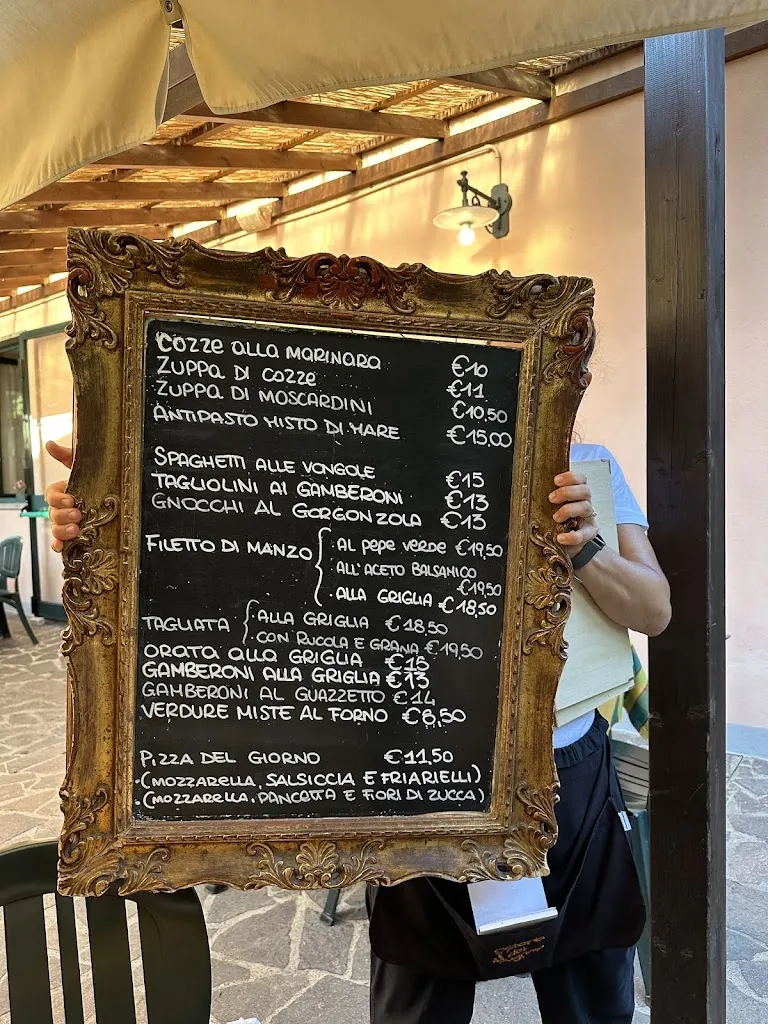 COZZE ALLA MARINARA €10
ZUPPA DI COZZE €11
ZUPPA DI MOSCARDINI €10,50
ANTIPASTO MISTO DI MARE €15,00
SPAGHETTI ALLE VONGOLE €15
TAGLIOLINI AI GAMBERONI €13
GNOCCHI AL GORGONZOLA €13
FILETTO DI MANZO { . AL PEPE VERDE €19,50
ALL'ACETO BALSAMICO
€19,50
. ALLA GRIGLIA €18,50
TAGLIATA { . ALLA GRIGLIA €18,50
. CON RUCOLA E GRANA €19,50
ORATA ALLA GRIGLIA €15
GAMBERONI ALLA GRIGLIA €13
GAMBERONI AL GUAZZETTO €14
VERDURE MISTE AL FORNO €8,50
PIZZA DEL GIORNO €11,50
.(MOZZARELLA, SALSICCIA E FRIARIELLI)
.(MOZZARELLA, PANCETTA E FIORI DI ZUCCA)